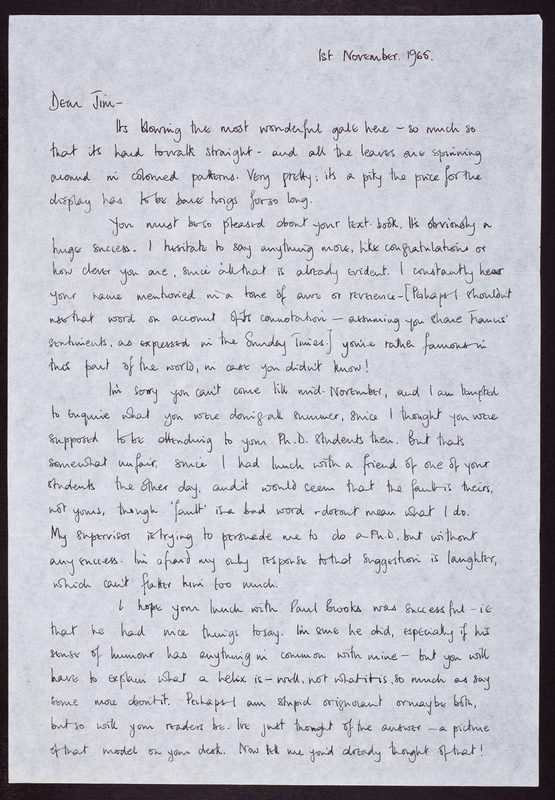 1st November. 1965.
Dear Jim-
Its blowing the most wonderful gale here - so much so
that its hard to walk straight - and all the leaves are spinning
around in coloured patterns. Very pretty; its a pity the price for the
display has to be bare twigs for so long.
You must be so pleased about your text-book. Its obviously a
huge success. I hesitate to say anything more, like congratulations or
how clever you are, since all that is already evident. I constantly hear
your name mentioned in a tone of awe or reverence - [Perhaps I shouldn't
use that word on account of its connotation - assuming you share Francis'
sentiments, as expressed in the Sunday Times.] you're rather famous in
this part of the world, in case you didn't know!
I'm sorry you can't come till mid-November, and I am tempted
to enquire what you were doing all summer, since I thought you were
supposed to be attending to your Ph.D. students then. But thats
somewhat unfair, since I had lunch with a friend of one of your
students the other day, and it would seem that the fault is theirs,
not yours, though 'fault' is a bad word - doesnt mean what I do.
My supervisor is trying to persuade me to do a Ph.D. but without
any success. I'm afraid my only response to that suggestion is laughter,
which can't flatter him too much.
I hope your lunch with Paul Brooks was successful - ie
that he had nice things to say. I'm sure he did, especially if his
sense of humour has anything in common with mine - but you will
have to explain what a helix is - well, not what it is, so much as say
some more about it. Perhaps I am stupid or ignorant or maybe both,
but so will your readers be. I've just thought of the answer - a picture
of that model on your desk. Now tell me you'd already thought of that!